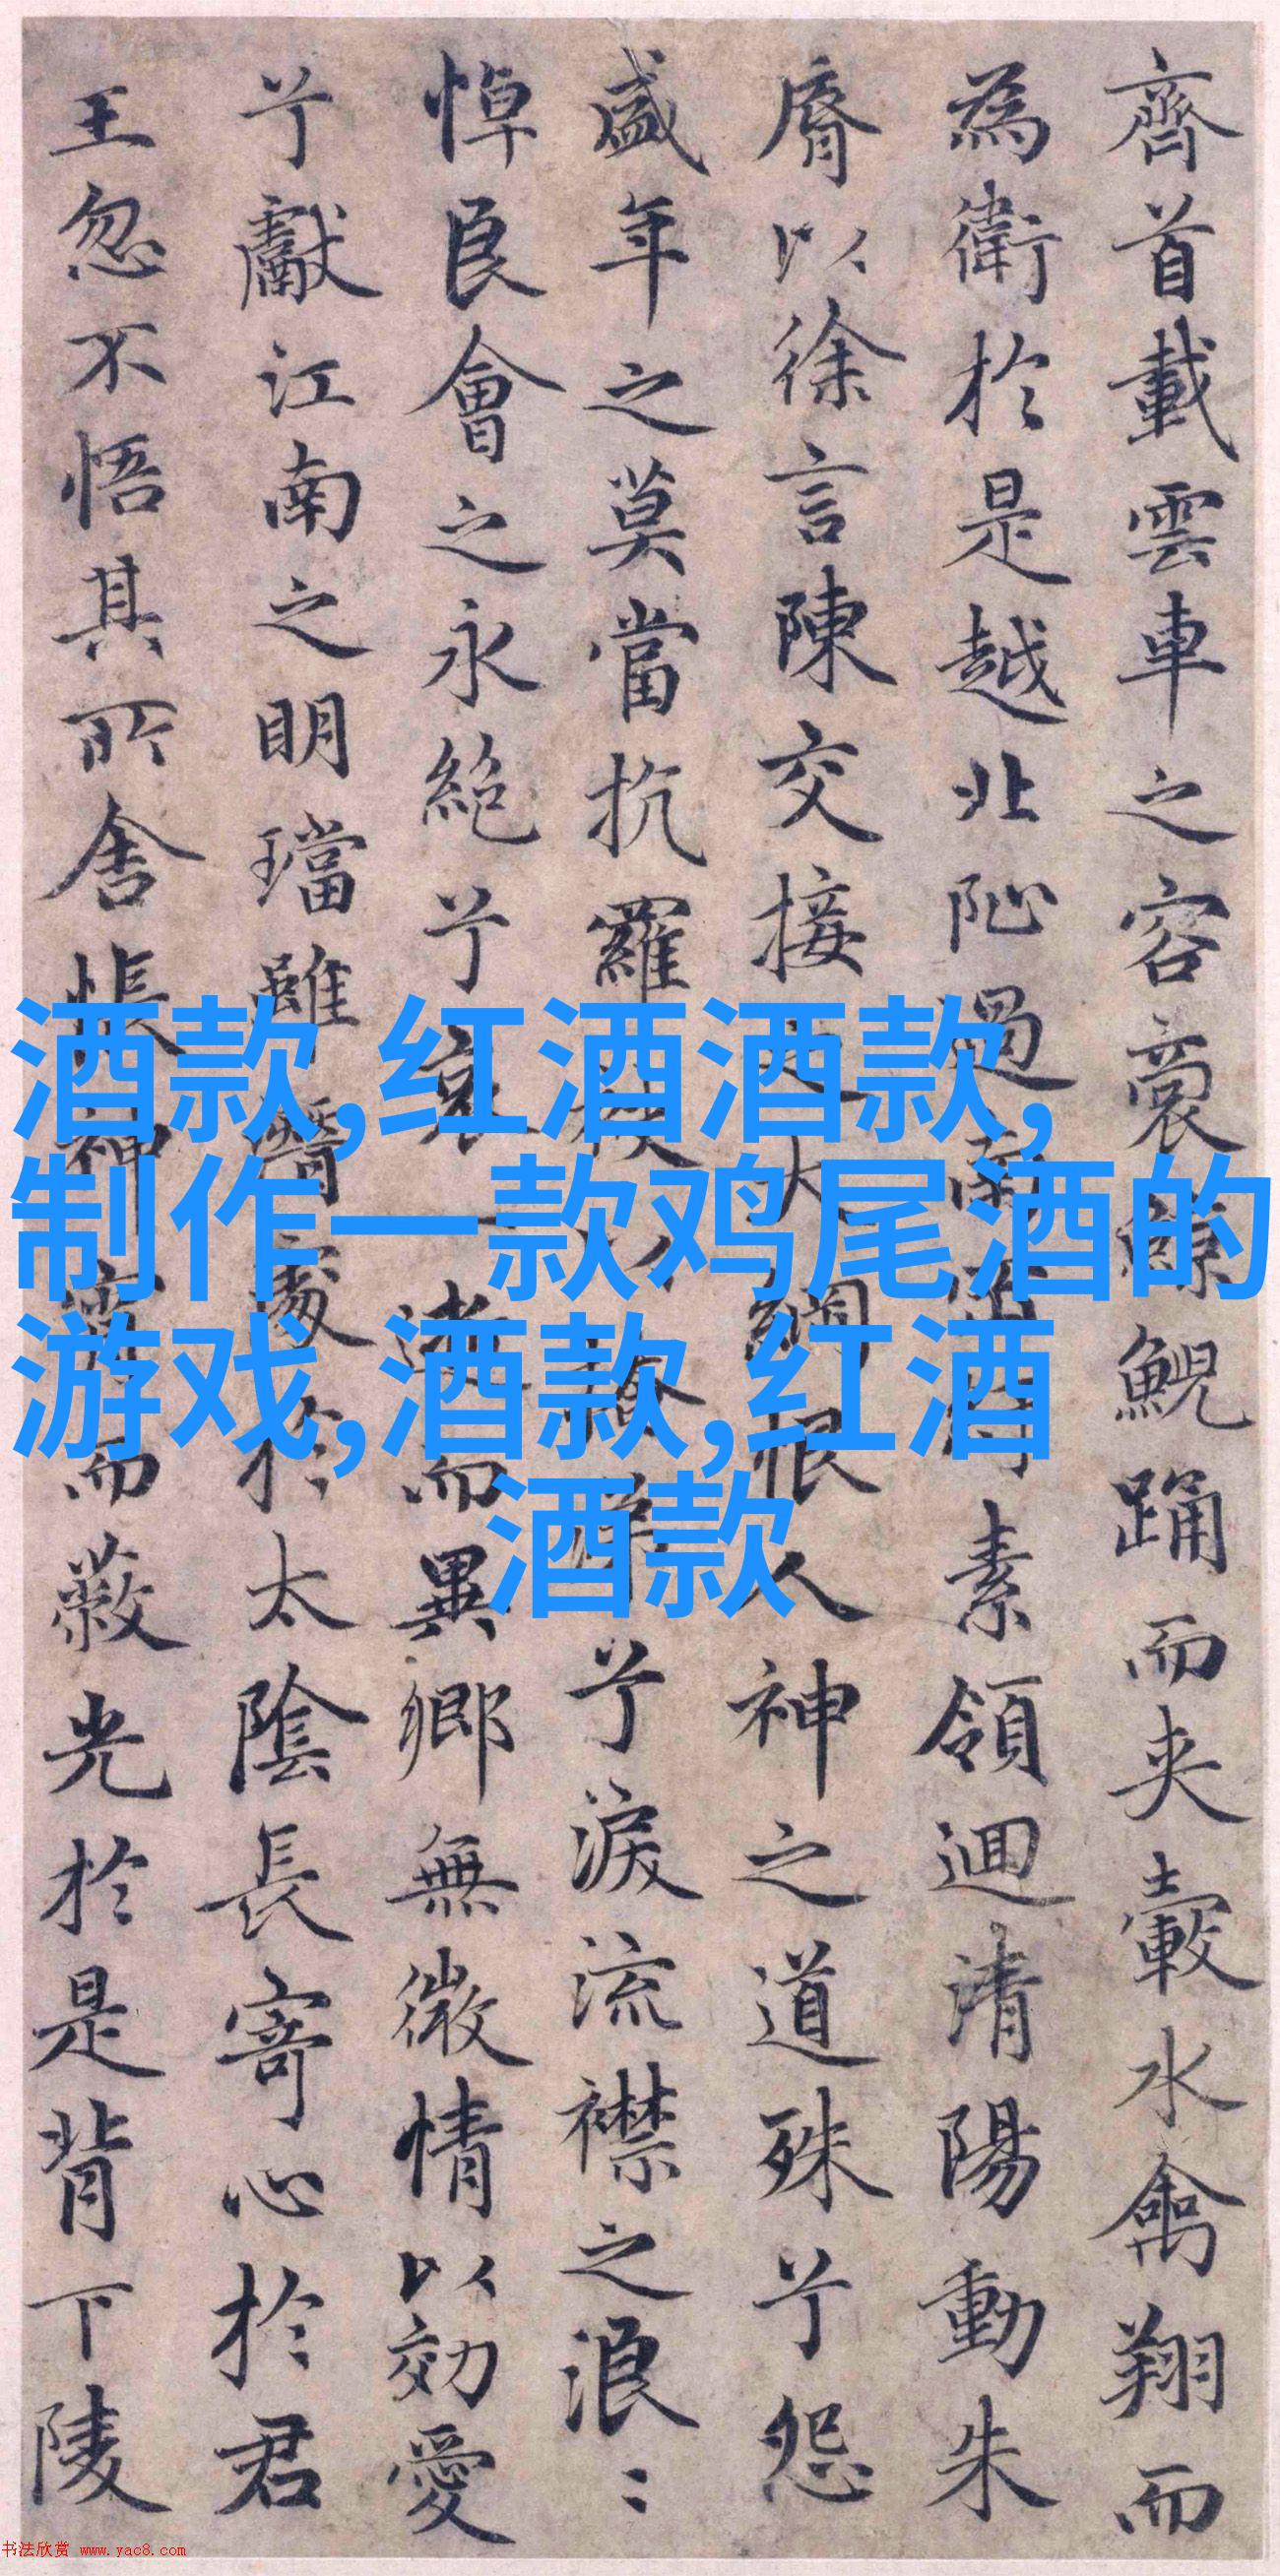 齊首載雲車之容裔鯨鯢踊而夾轂水禽翔而
為衛於是越北沚過南素領迴清陽動朱
脣以徐言陳交接之大綱恨人神之道殊兮怨
盛年之莫當抗羅袂以兮淚流襟之浪〻
悼良會之永絕兮哀一逝而異鄉無微情以効愛
兮獻江南之明璫雖潛處於太陰長寄心於君
王忽不悟其所舍悵神宵而蔽光於是背下陵
酒款,红酒酒款,
制作一款鸡尾酒的
游戏,酒款,红酒
酒款
书法欣赏 www.yac8.com